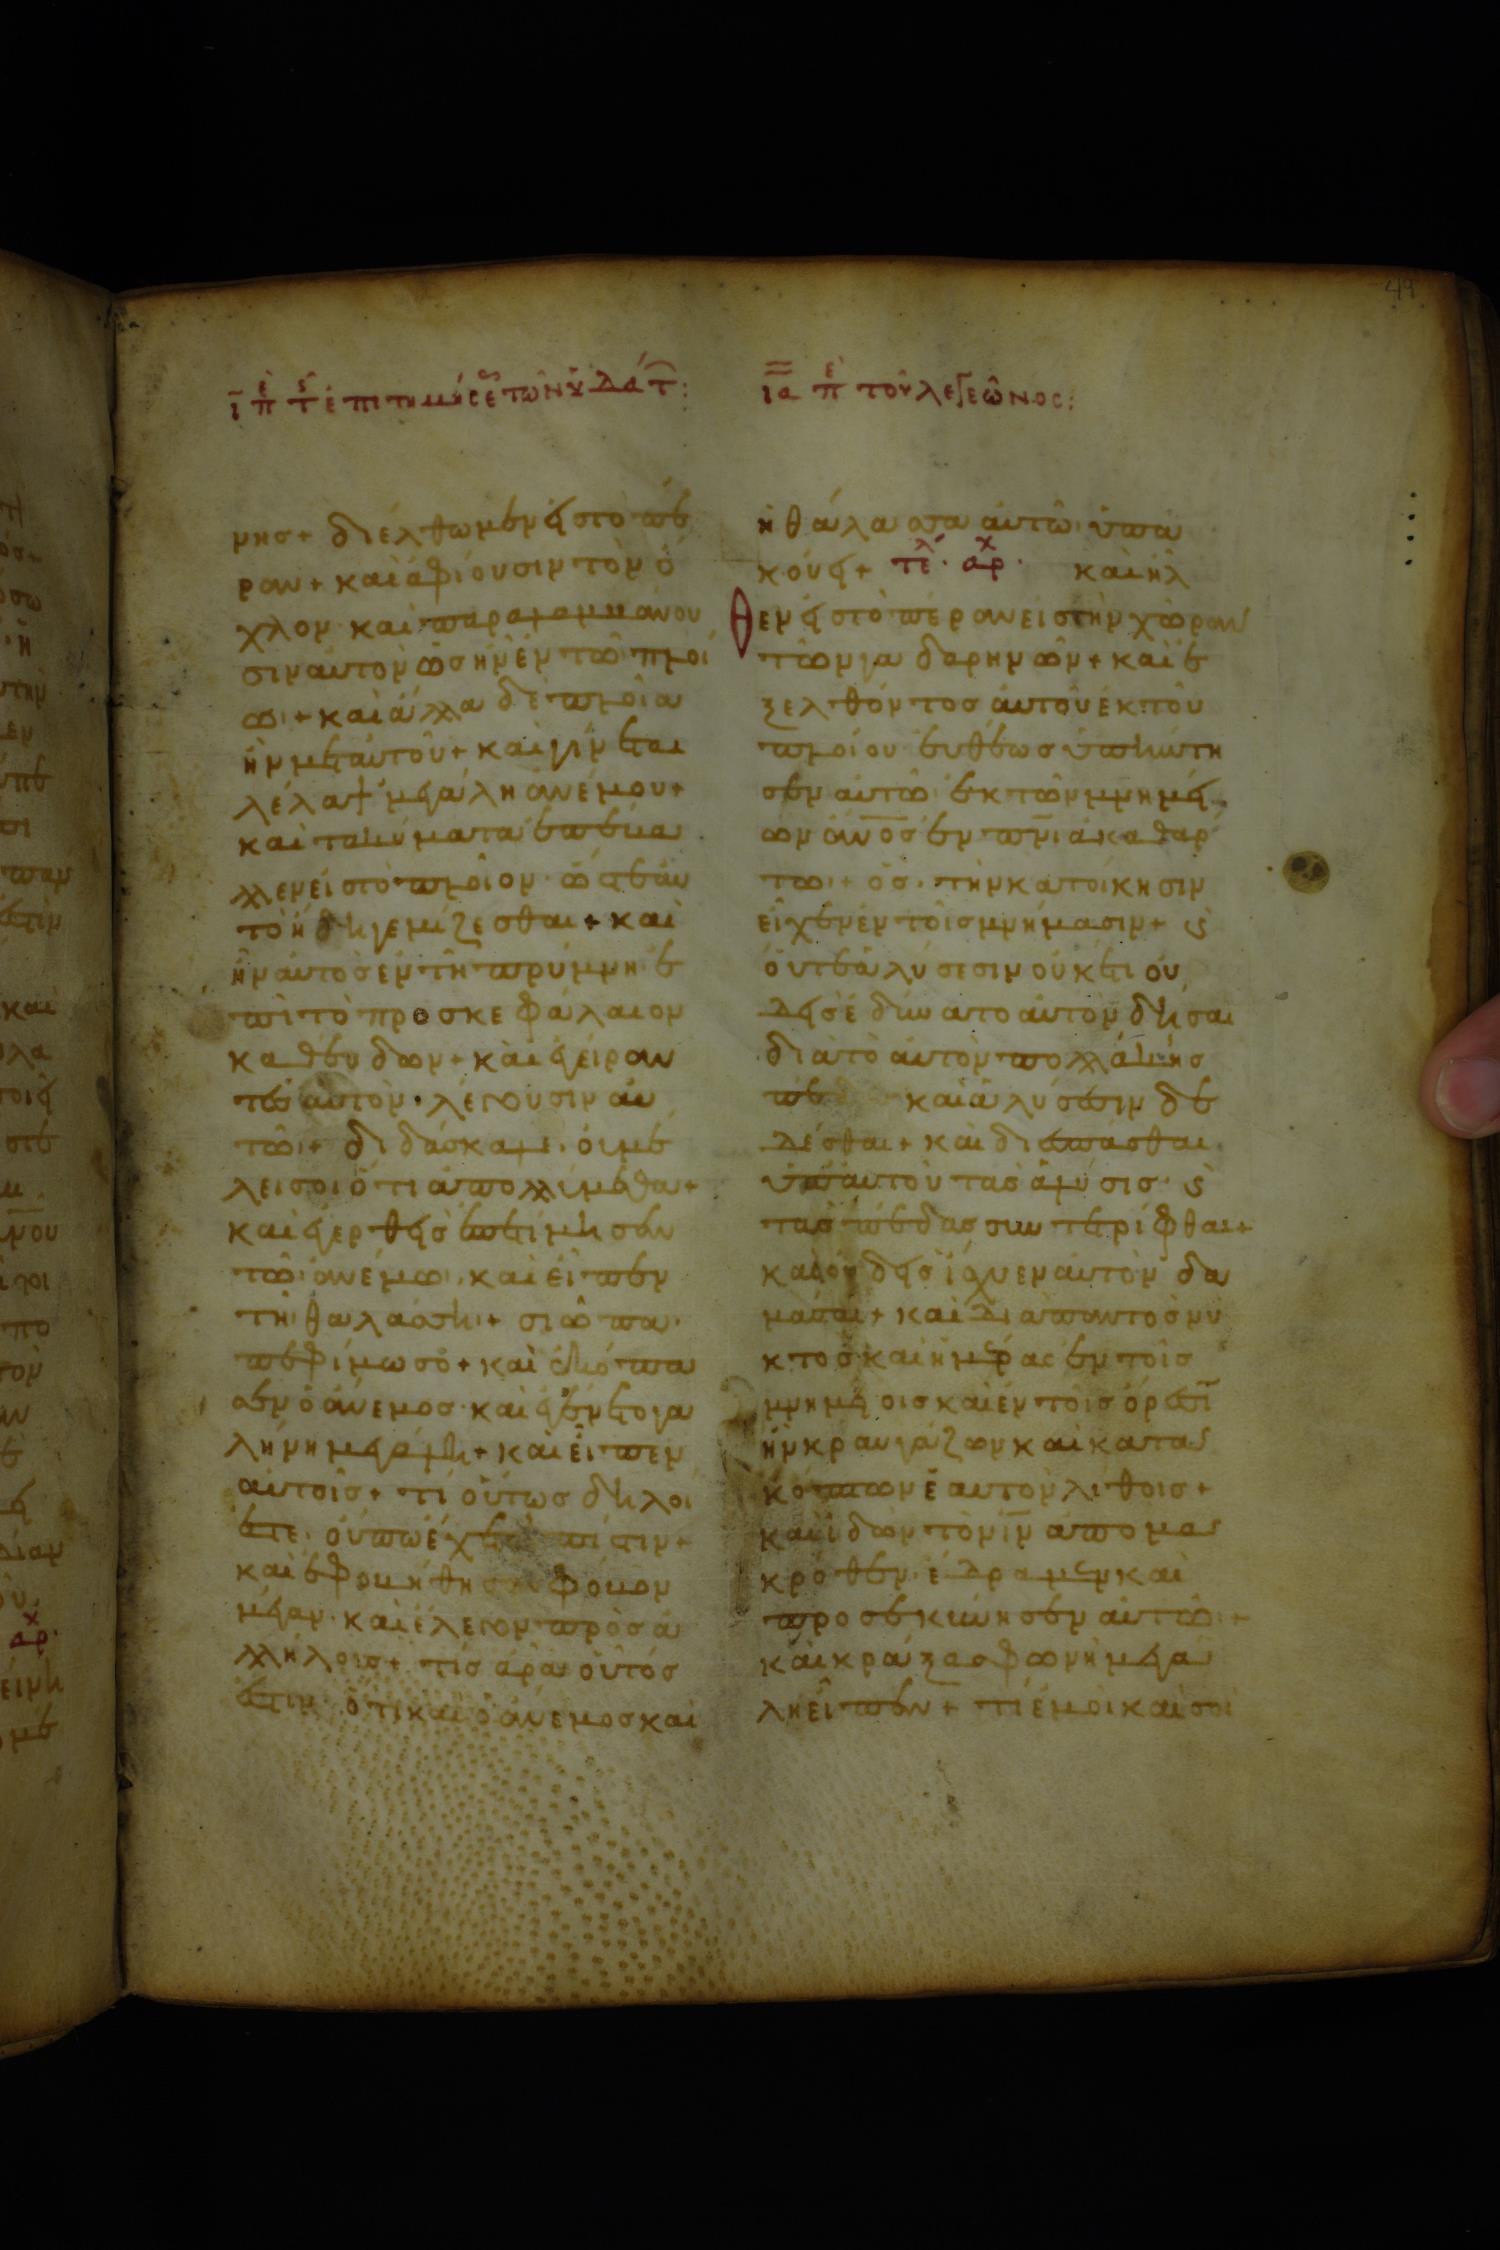 ῑ π̀ε τ̀ς ἐπιτημήσεως τῶν ὑδάτ:
ια π̀ε τοῦ λεγεῶνος:
μησ+ διελθωμεν εἰσ τὸ πέ
ραν+ καὶ ἀφιόυσιν τὸν ὀ
χλον· καὶ παραλαμβάνου
σιν αυτον ὡσ ἦν ἐν τῶ πλοί
ω+ καὶ ἄλλα δὲ πλοῖα
ἦν μετ αυτοῦ+ καὶ γίνεται
λέλαψ μεγάλη ἀνέμου+
και τα κύματα ἐπέβα
λλεν εἰσ τὸ πλοῖον· ὥστε ἀυ
τὸ ἤδη γεμίζεσθαι+ καὶ
ἦν αυτὸσ ἐν τῆ πρύμνη ἐ
πὶ τὸ προσκεφάλαιον
καθεύδων+ καὶ ἐγείραν
τεσ αυτὸν· λέγουσιν αυ
τῶ+ διδάσκαλε· ὀυ μέ
λει σοι ὅτι ἀπολλύμεθα+
καὶ ἐγερθεὶσ ἐπετίμησεν
τῶ ἀνέμω· καὶ εἶπεν
τῆ θαλάσση+ σιώπα·
πεφίμωσο+ καὶ ἐκόπα
σεν ὁ άνεμοσ· καὶ ἐγένετο γα
λήνη μεγάλη+ καὶ εἶπεν
αυτοῖσ+ τί ὅυτωσ δηλοί
ἐστε· ὄυπω ἔχετε πίστιν+
καὶ ἐφοβήθησαν φόβον
μέγαν· καὶ ἔλεγον πρὸσ ἀ
λλήλουσ+ τίσ ἄρα οὗτόσ
ἐστιν· ὅτι καὶ ὁ άνεμοσ καὶ
ἡ θάλασσα ἀυτῶ ὑπα
κόυει+ τὲλ· αρχ· καὶ ἦλ
θεν εἰσ τὸ πέραν εισ τὴν χώραν
τῶν γαδαρηνῶν+ καὶ ἐ
ξελθόντοσ ἀυτοῦ ἐκ τοῦ
πλοίου ἐυθέωσ ὑπήντη
σεν αυτῶ ἐκ τῶν μνημεί
ων ἀν̅οσ ἐν πν̅ι ἀκαθάρ
τω+ ὅσ· τὴν κατοίκησιν
εἶχεν ἐν τοῖσ μνήμασιν+ ϛ
ὄυτε ἁλύσεσιν ὀυκέτι ὀυ
δεὶσ ἐδύνατο ἀυτὸν δῆσαι
διὰ τὸ ἀυτὸν πολλάκησ
πέδ καὶ ἁλύσεσιν δε
δέσθαι+ καὶ διεσπάσθαι
ὑπ ἀυτοῦ τὰσ ἁλύσισ· ϛ
τὰσ πέδασ συντετρίφθαι+
καὶ ὀυδεὶσ ἴσχυεν αυτὸν δα
μάσαι+ καὶ διαπαντὸσ νυ
κτὸσ καὶ ἡμέρασ ἐν τοῖσ
μνημείοισ καὶ ἐν τοῖσ ὄρεσι
ἦν κραυγάζων καὶ κατα
κόπτων ἑαυτὸν λίθοισ+
καὶ ἰδὼν τὸν ιν̅ ἀπὸ μα
κρόθεν· ἔδραμεν καὶ
προσεκύνησεν ἀυτῶ+
καὶ κράξασ φωνῆ μεγά
λη εἶπεν+ τί ἐμοὶ καὶ σοὶ